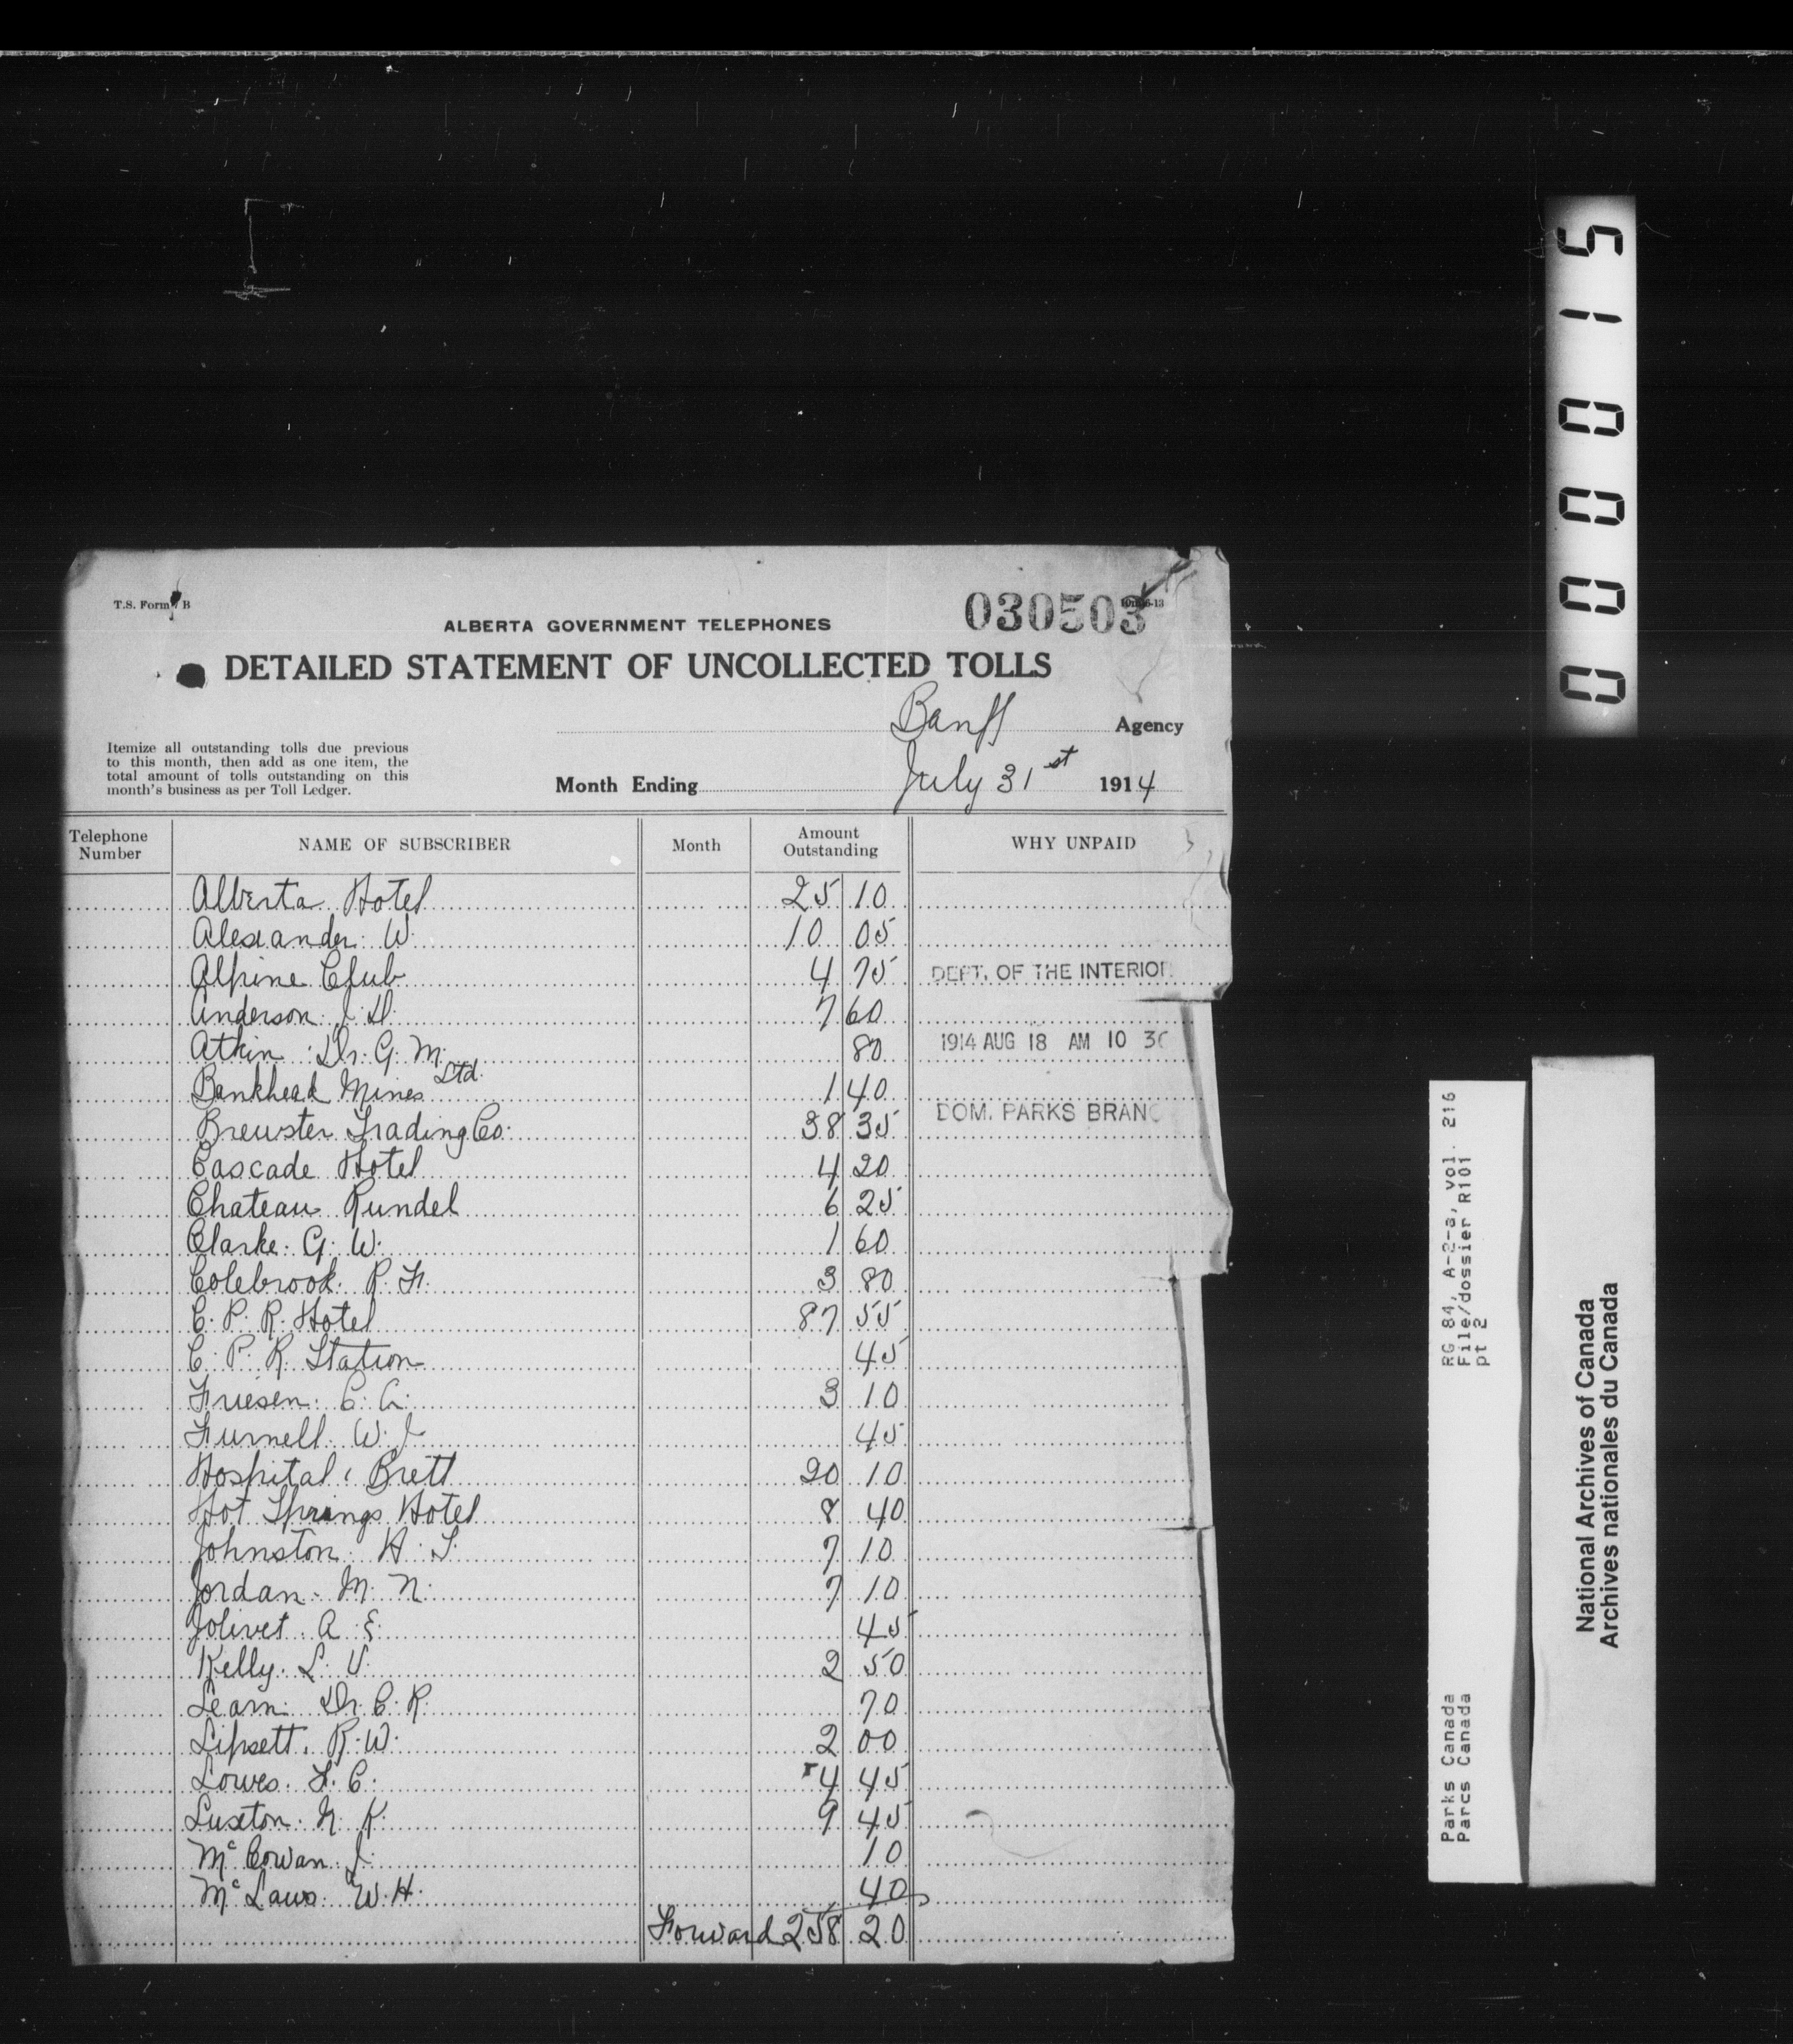 T.S. Form B
ALBERTA GOVERNMENT TELEPHONES
030503
DETAILED STATEMENT OF UNCOLLECTED TOLLS
Banff Agency
Itemize all outstanding tolls due previous
to this month, then add as one item, the
total amount of tolls outstanding on this
month's business as per Toll Ledger.
Month Ending July 31st 1914
Telephone Number NAME OF SUBSCRIBER Month Amount Outstanding WHY UNPAID
Alberta Hotel 25 10
Alexander W. 10 05
Alpine Club 4 75
DEPT. OF THE INTERIOR
Anderson J. D. 7 60
Atkin Dr. G. M. 80
1914 AUG 18 AM 10 30
Bankhead Mines Ltd. 1 40
Brewster Trading Co. 38 35
DOM. PARKS BRANC
Cascade Hotel 4 20
Chateau Rundel 6 25
Clarke. G. W. 1 60
Colebrook. R. F. 3 80
C. P. R. Hotel 87 55
C. P. R. Station 45
Friesen. C. A. 3 10
Furnell. W. J. 45
Hospital, Brett 20 10
Hot Springs Hotel 8 40
Johnston. H. S. 7 10
Jordan. M. N. 7 10
Jolivet. A. E. 45
Kelly. L. V. 2 50
Learn. Dr. C. R. 70
Lipsett. R. W. 2 00
Lowes. F. C. 4 45
Luxton. N. K. 9 45
McCowan J. 10
McLaws. W. H. 40
Forward 258 20
00015
RG 84, A-2-a, vol. 216
File/dossier R101
pt 2
Parks Canada
Parcs Canada
National Archives of Canada
Archives nationales du Canada